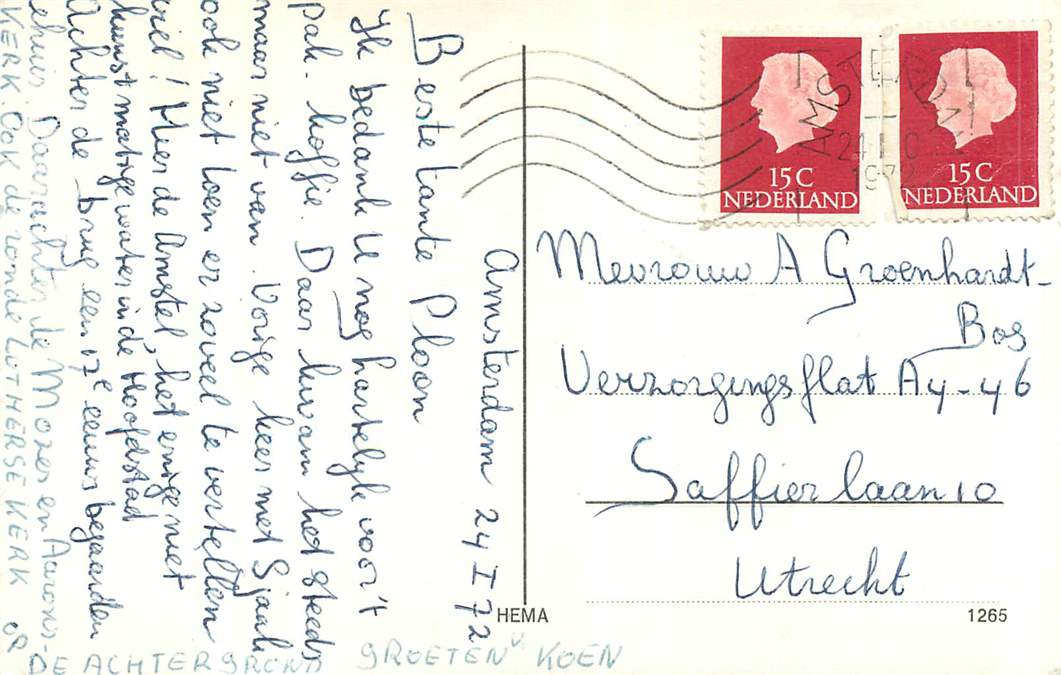 Amsterdam 24 I 72
Beste tante Ploon
Ik bedank U nog hartelijk voor't
pak koffie. Daar kwam het steeds
maar niet van. Vorige keer met Sjaak
ook niet toen er zoveel te vertellen
viel! Hier de Amstel, het enige niet
kunstmatige water in de Hoofdstad
Achter de brug een 17e eeuws bejaarden
ehuis Daarachter de Mozes en Aarons-
KERK. OOK DE RONDE LUTHERSE KERK OP
DE ACHTERGROND GROETEN v. KOEN
AMSTERDAM
24 I
1972
15 C
NEDERLAND
15 C
NEDERLAND
Mevrouw A Groenhardt-
Bos
Verzorgingsflat A4-46
Saffierlaan 10
Utrecht
HEMA
1265